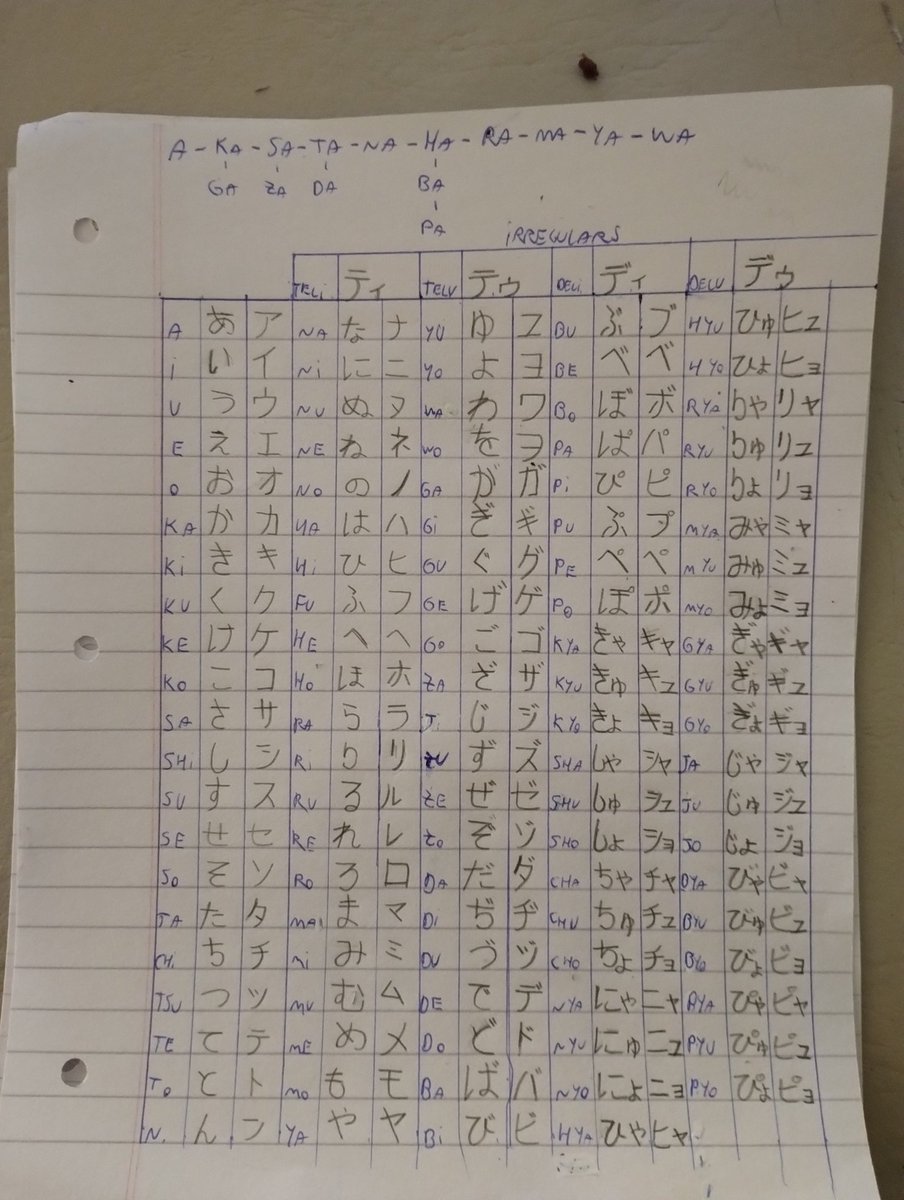 A - KA - SA - TA - NA - HA - RA - MA - YA - WA
GA ZA DA BA
PA
IRREGULARS
TELI ティ TELU テゥ DELI ディ DELU デゥ
A あ ア NA な ナ YU ゆ ユ BU ぶ ブ HYU ひゅ ヒュ
I い イ NI に ニ YO よ ヨ BE べ ベ HYO ひょ ヒョ
U う ウ NU ぬ ヌ WA わ ワ BO ぼ ボ RYA りゃ リャ
E え エ NE ね ネ WO を ヲ PA ぱ パ RYU りゅ リュ
O お オ NO の ノ GA が ガ PI ぴ ピ RYO りょ リョ
KA か カ HA は ハ GI ぎ ギ PU ぷ プ MYA みゃ ミャ
KI き キ HI ひ ヒ GU ぐ グ PE ぺ ペ MYU みゅ ミュ
KU く ク FU ふ フ GE げ ゲ PO ぽ ポ MYO みょ ミョ
KE け ケ HE へ ヘ GO ご ゴ KYA きゃ キャ GYA ぎゃ ギャ
KO こ コ HO ほ ホ ZA ざ ザ KYU きゅ キュ GYU ぎゅ ギュ
SA さ サ RA ら ラ JI じ ジ KYO きょ キョ GYO ぎょ ギョ
SHI し シ RI り リ ZU ず ズ SHA しゃ シャ JA じゃ ジャ
SU す ス RU る ル ZE ぜ ゼ SHU しゅ シュ JU じゅ ジュ
SE せ セ RE れ レ ZO ぞ ゾ SHO しょ ショ JO じょ ジョ
SO そ ソ RO ろ ロ DA だ ダ CHA ちゃ チャ BYA びゃ ビャ
TA た タ MA ま マ DI ぢ ヂ CHU ちゅ チュ BYU びゅ ビュ
CHI ち チ MI み ミ DU づ ヅ CHO ちょ チョ BYO びょ ビョ
TSU つ ツ MU む ム DE で デ NYA にゃ ニャ PYA ぴゃ ピャ
TE て テ ME め メ DO ど ド NYU にゅ ニュ PYU ぴゅ ピュ
TO と ト MO も モ BA ば バ NYO にょ ニョ PYO ぴょ ピョ
N. ん ン YA や ヤ BI び ビ HYA ひゃ ヒャ